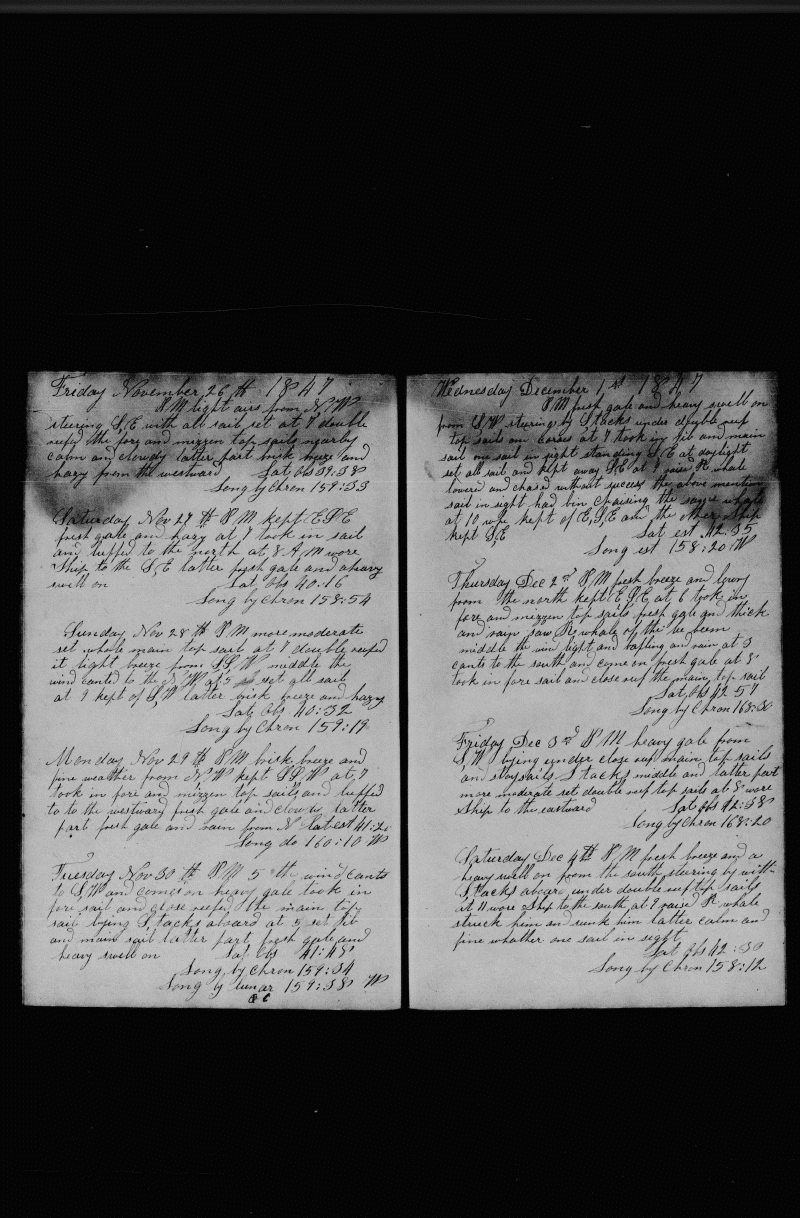 Friday November 26th 1847
P M light airs from N, W
steering S, E with all sail set at 7 double
reefd the fore and mizzen top sails nearby
calm and cloudy latter part brisk breeze and
hazy from the westward Lat Obs 39:38
Long by Chron 159:33
Saturday Nov 27th P M kept E S E
fresh gale and hazy at 7 took in sail
and luffed to the north at 8 A, M wore
Ship to the S, E latter fresh gale and a heavy
swell on Lat Obs 40:16
Long by Chron 158:54
Sunday Nov 28th P M more moderate
set whole main top sail at 7 double reefed
it light breeze from S S, W middle the
wind canted to the N W at 5 set all sail
at 9 kept of S, W latter brisk breeze and hazy
Lat Obs 40:32
Long by Chron 159:19
Monday Nov 29th P M brisk breeze and
fine weather from N, W kept S S, W at 7
took in fore and mizzen top sails and luffed
to to the westward fresh gale and cloudy latter
part fresh gale and rain from N Lat est 41:20
Long do 160:10 W
Tuesday Nov 30th P, M 5 th wind cants
to S, W and comes on heavy gale took in
fore sail and close reefed the main top
sail lying S, tacks aboard at 5 set jib
and main sail latter part fresh gale and
heavy swell on Lat Obs 41:48
Long by Chron 159:34
Long by lunar 159:38 W
Wednesday December 1st 1847
P M fresh gale and heavy swell on
from S W steering by S tacks under double reef
top sails and corses at 7 took in jib and main
sail one sail in sight standing S, E at daylight
set all sail and kept away S E at 9 raised R whale
lowered and chased without success the above mention
sail in sight had bin chaising the same whale
at 10 wife kept of E, S, E and the other ship
kept S, E Lat est 42:35
Long est 158:20 W
Thursday Dec 2nd P, M fresh breeze and lowry
from the north kept E, S, E, at 6 took in
fore and mizzen top sails fresh gale and thick
and rain saw R, whale of the lee beem
middle the wind light and bafling and rain at 3
cants to the south and come on fresh gale at 8
took in fore sail and close reef the main, top sail
Lat, Obs 42 57
Long by Chron 168:30
Friday Dec 3rd P M heavy gale from
S, W, lying under close reef main top sails
and staysails S tacks middle and latter part
more moderate set double reef top sails at 8 wore
Ship to the eastward Lat Obs 42:58
Long by Chron 168:20
Saturday Dec 4th P, M fresh breeze and a
heavy swell on from the south steering by with
S, tacks aboard under double reef top sails
at 11 wore Ship to the south, at 9 raised R whale
struck him and sunk him latter calm and
fine whather one sail in sight,
Lat Obs 42:30
Long by Chron 158:12